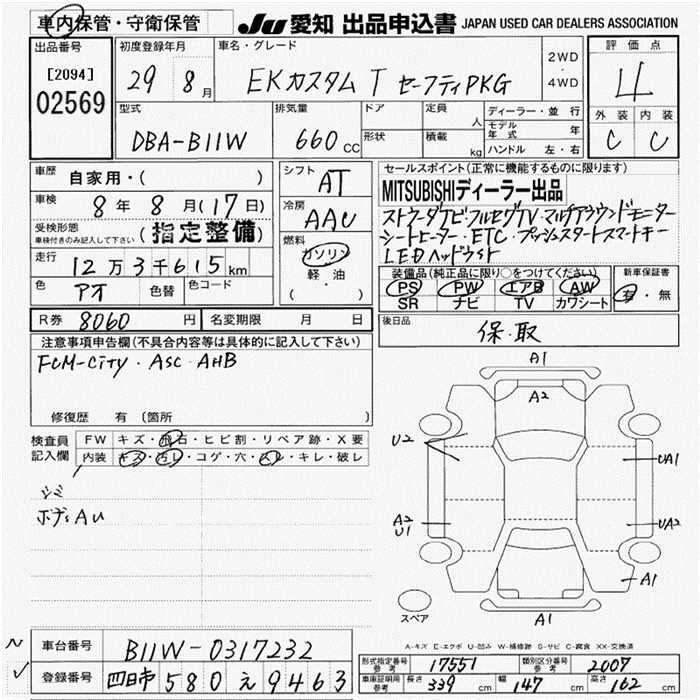 車内保管・守衛保管 JU 愛知 出品申込書 JAPAN USED CAR DEALERS ASSOCIATION
出品番号 初度登録年月 車名・グレード 2WD・4WD 評価点
[2094] 29 8月 EKカスタム T セーフティPKG 4
02569
型式 排気量 ドア 定員 人 ディーラー・並行 外装 内装
DBA-B11W 660cc 形状 積載 kg モデル年式 年 C C
ハンドル 左・右
車歴 自家用・( ) シフト AT セールスポイント(正常に機能するものに限ります)
車検 8年8月(17日) 冷房 AAC MITSUBISHIディーラー出品
受検形態 (指定整備) ストラーダナビ・フルセグTV・マルチアラウンドモニター
車検付きのみ記入して下さい 燃料 シートヒーター・ETC・プッシュスタートスマートキー
走行 12万3千615km ガソリン LEDヘッドライト
軽・油
( ・ )
色 アオ 色替 色コード 装備品(純正品に限り○をつけてください) 新車保証書
PS PW エアB AW 有・無
SR ナビ TV カワシート
R券 8060円 名変期限 月 日 後日品 保・取
注意事項申告欄(不具合内容等は具体的に記入して下さい)
FCM-City・ASC・AHB
修復歴 有(箇所
検査員記入欄 FW キズ・飛石・ヒビ割・リペア跡・X要
内装 キズ・汚レ・コゲ・穴・スレ・キレ・破レ
シミ
ボデーAU
A1
A2
U2
UA1
A2
U1
UA2
A1
A1
スペア
A-キズ E-エクボ U-凹み W-補修跡 S-サビ C-腐食 XX-交換済
車台番号 B11W-0317232
登録番号 四日市 580 え 9463
形式指定番号 参考 17551 類別区分番号 参考 2007
車庫証明用 参考 長さ 339cm 幅 147cm 高さ 162cm